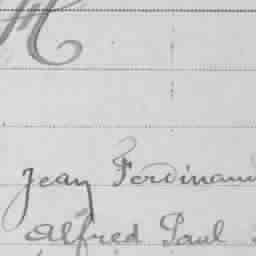 M
Jean Ferdinand
Alfred Paul